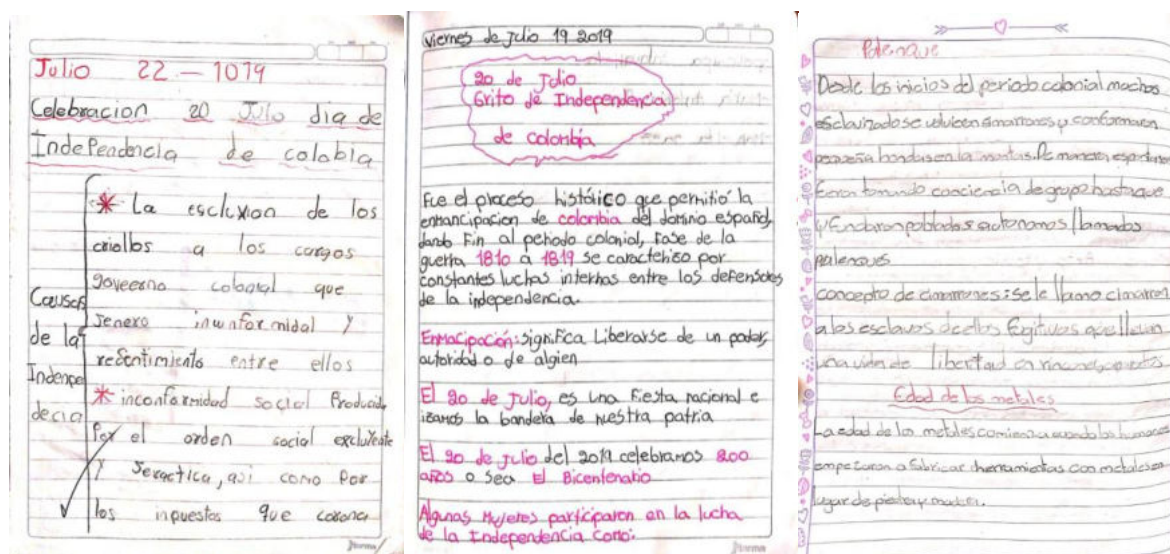 Julio 22 - 1019
Celebracion 20 Julo dia de
IndePendencia de colabia
Causes
de la
Indenpe
decia
* La esclusion de los
criollos a los cargos
goveerno colonial que
Jenero inwnformidal y
resentimiento entre ellos
* inconformidad social Producida
Por el orden social excluyente
y Jeractica, asi como Por
los inpuestos que corona
Norma
Viernes de Julio 19 2019
20 de Julio
Grito de Independencia
de colombia
Fue el proceso histórico que permitió la
enmancipacion de colombia del dominio español,
dando Fin al periodo colonial, Fase de la
guerra 1810 a 1819 se caracteriso por
constantes luchas internas entre los defensores
de la independencia.
Enmacipación: significa Liberarse de un poder,
autoridad o de algien
El 20 de Julio, es una Fiesta nacional e
izamos la bandera de nuestra patria
El 20 de julio del 2019 celebramos 200
años o sea El Bicentenario
Algunas Mujeres participaron en la lucha
de la Independencia como:
Norma
Palenque
Desde los inicios del periodo colonial muchos
esclavizado se volvieen simarrones y conformaron
pequeña bandas en la montas. De manera
Fueron tomando conciencia de grupo hasta que
y Fundaron poblados autonomos llamados
palenques
concepto de cimarrones: se le llamo cimarron
a los esclavos Fugitivos que llevan
una vida de libertad en
Edad de los metales
La edad de los metales comienza cuando los humanos
empezaron a fabricar herramientas con metales en
lugar de piedra y madera.